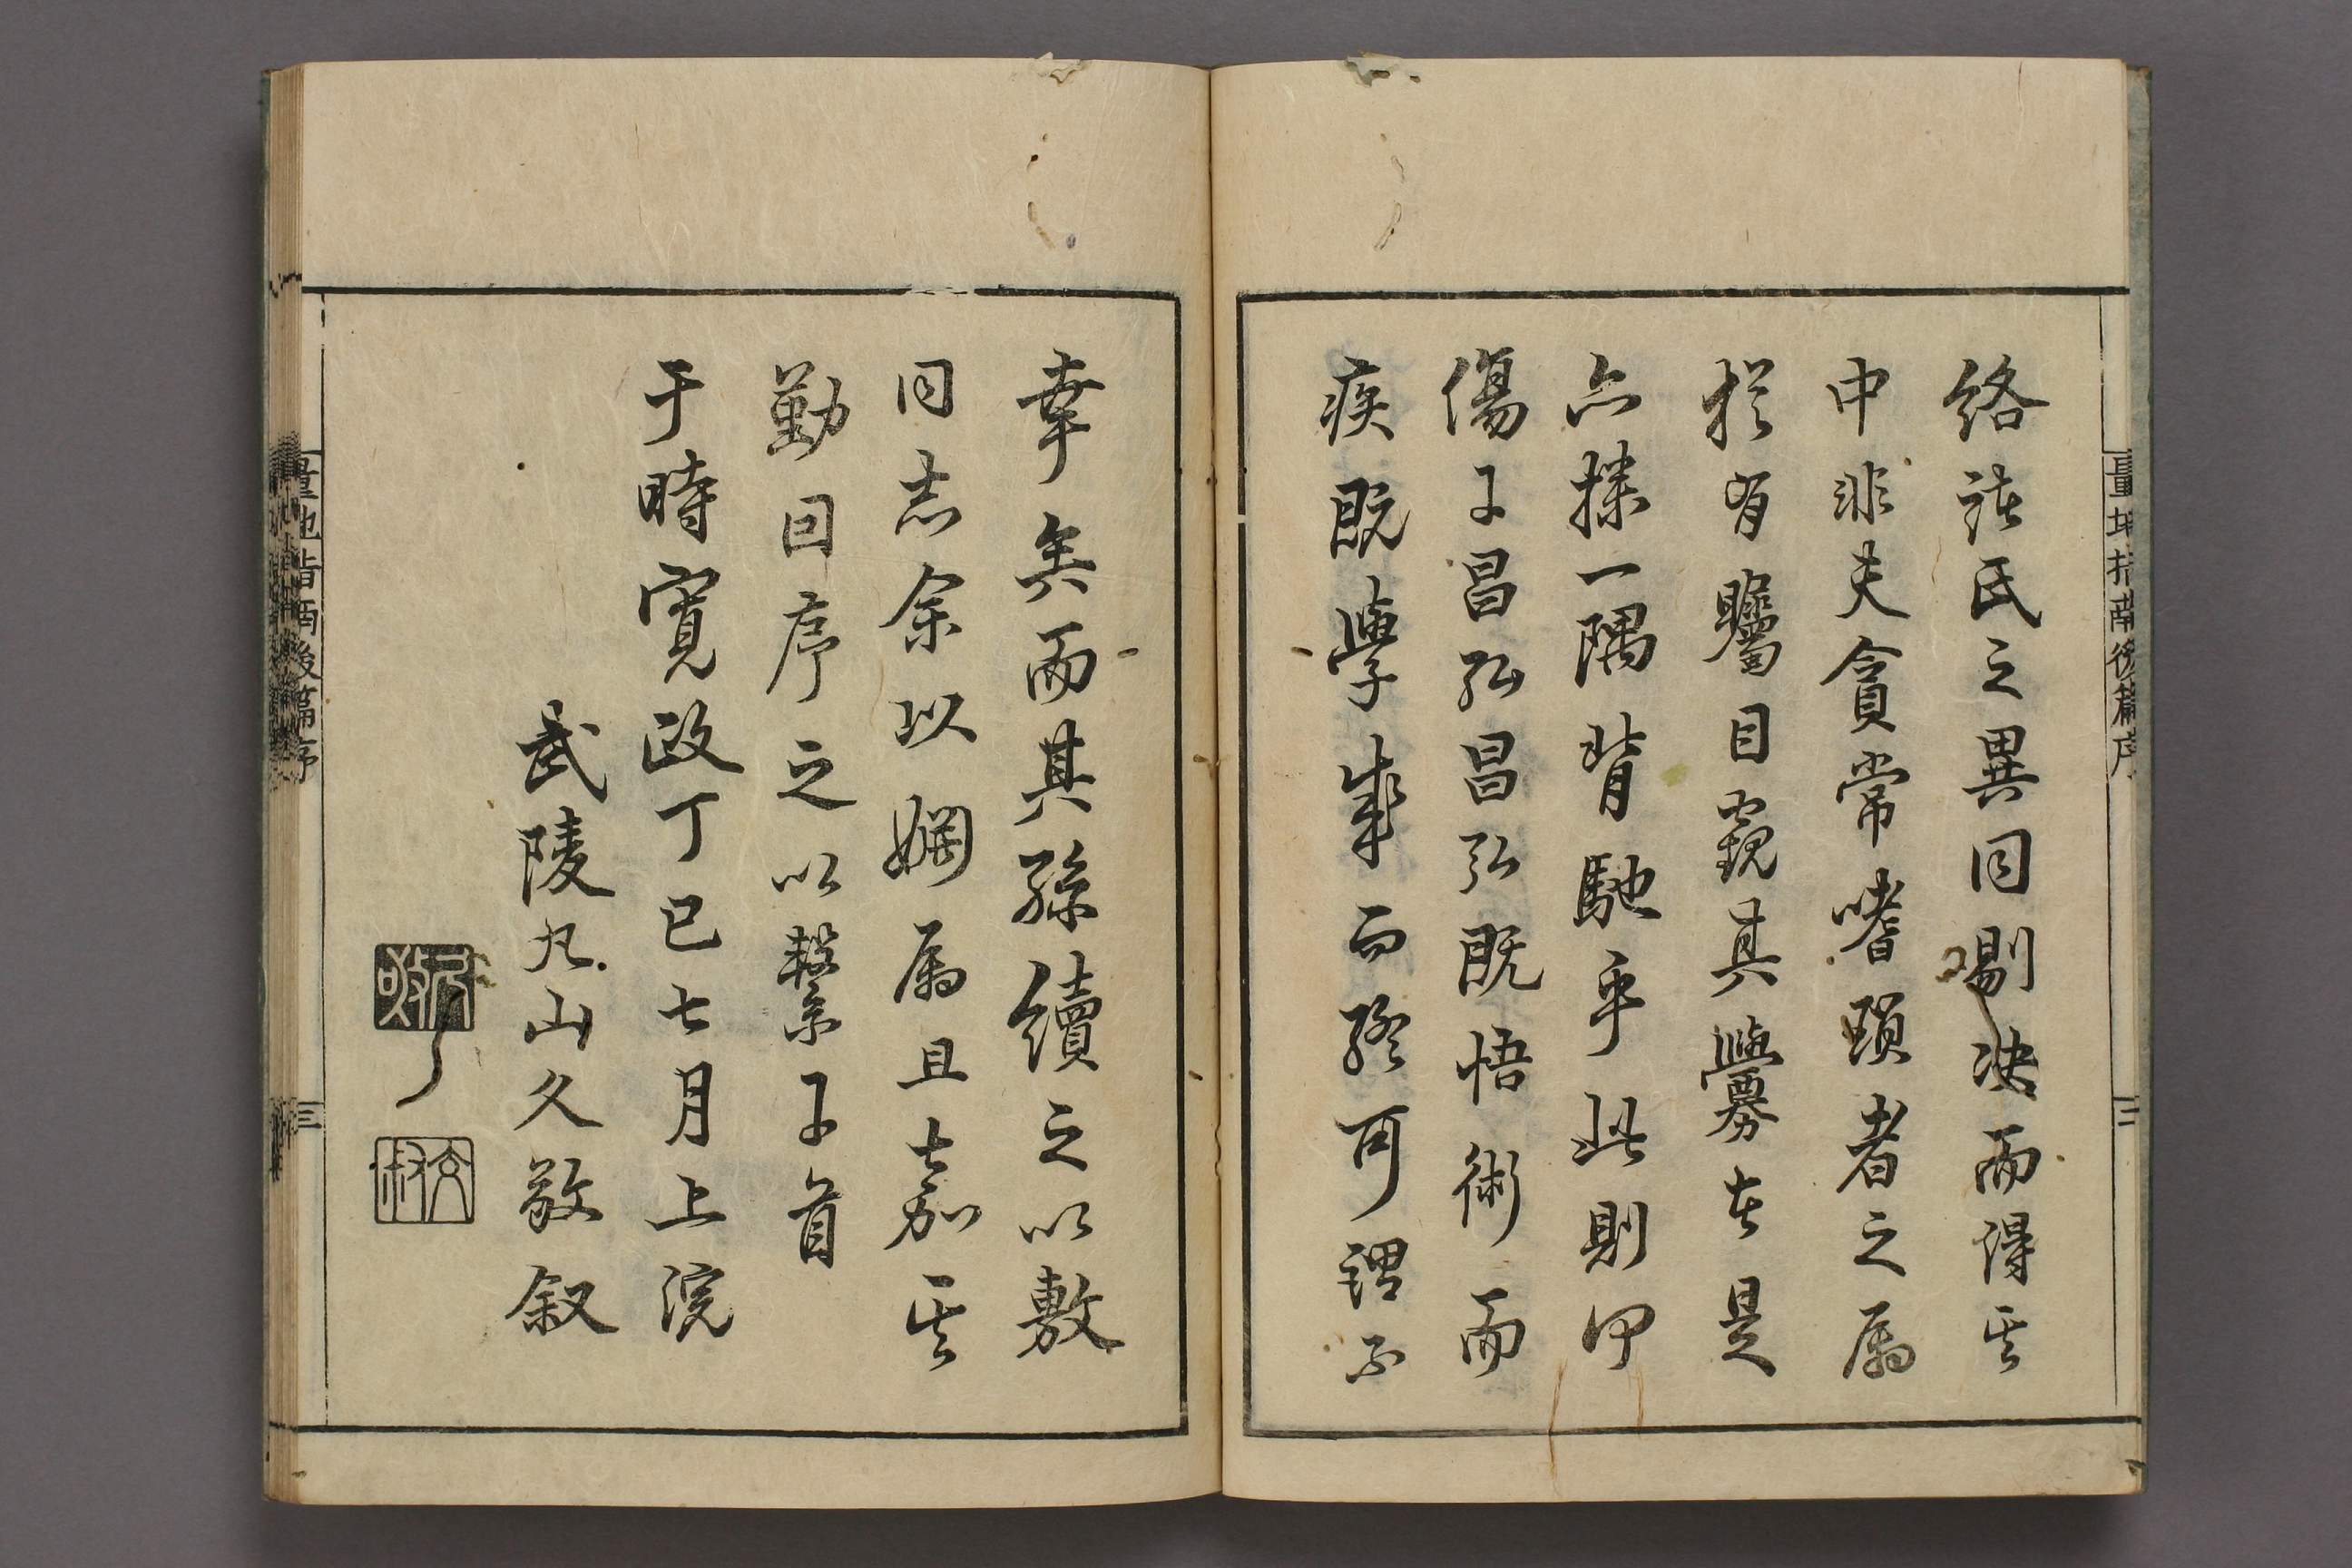 量地指南後篇序 二
絡諸氏之異同剔决而得其
中非夫貪常嗜瑣者之属
於有矚目窺其釁在是
亦操一隅背馳乎此則
傷于昌弘昌弘既悟術而
疾既學而可謂不
幸矣而其孫續之以敷
同志余以婣属且嘉其
勤因序之以繫于首
于時寛政丁巳七月上浣
武陵九山久敬叙
量地指南後篇序 三